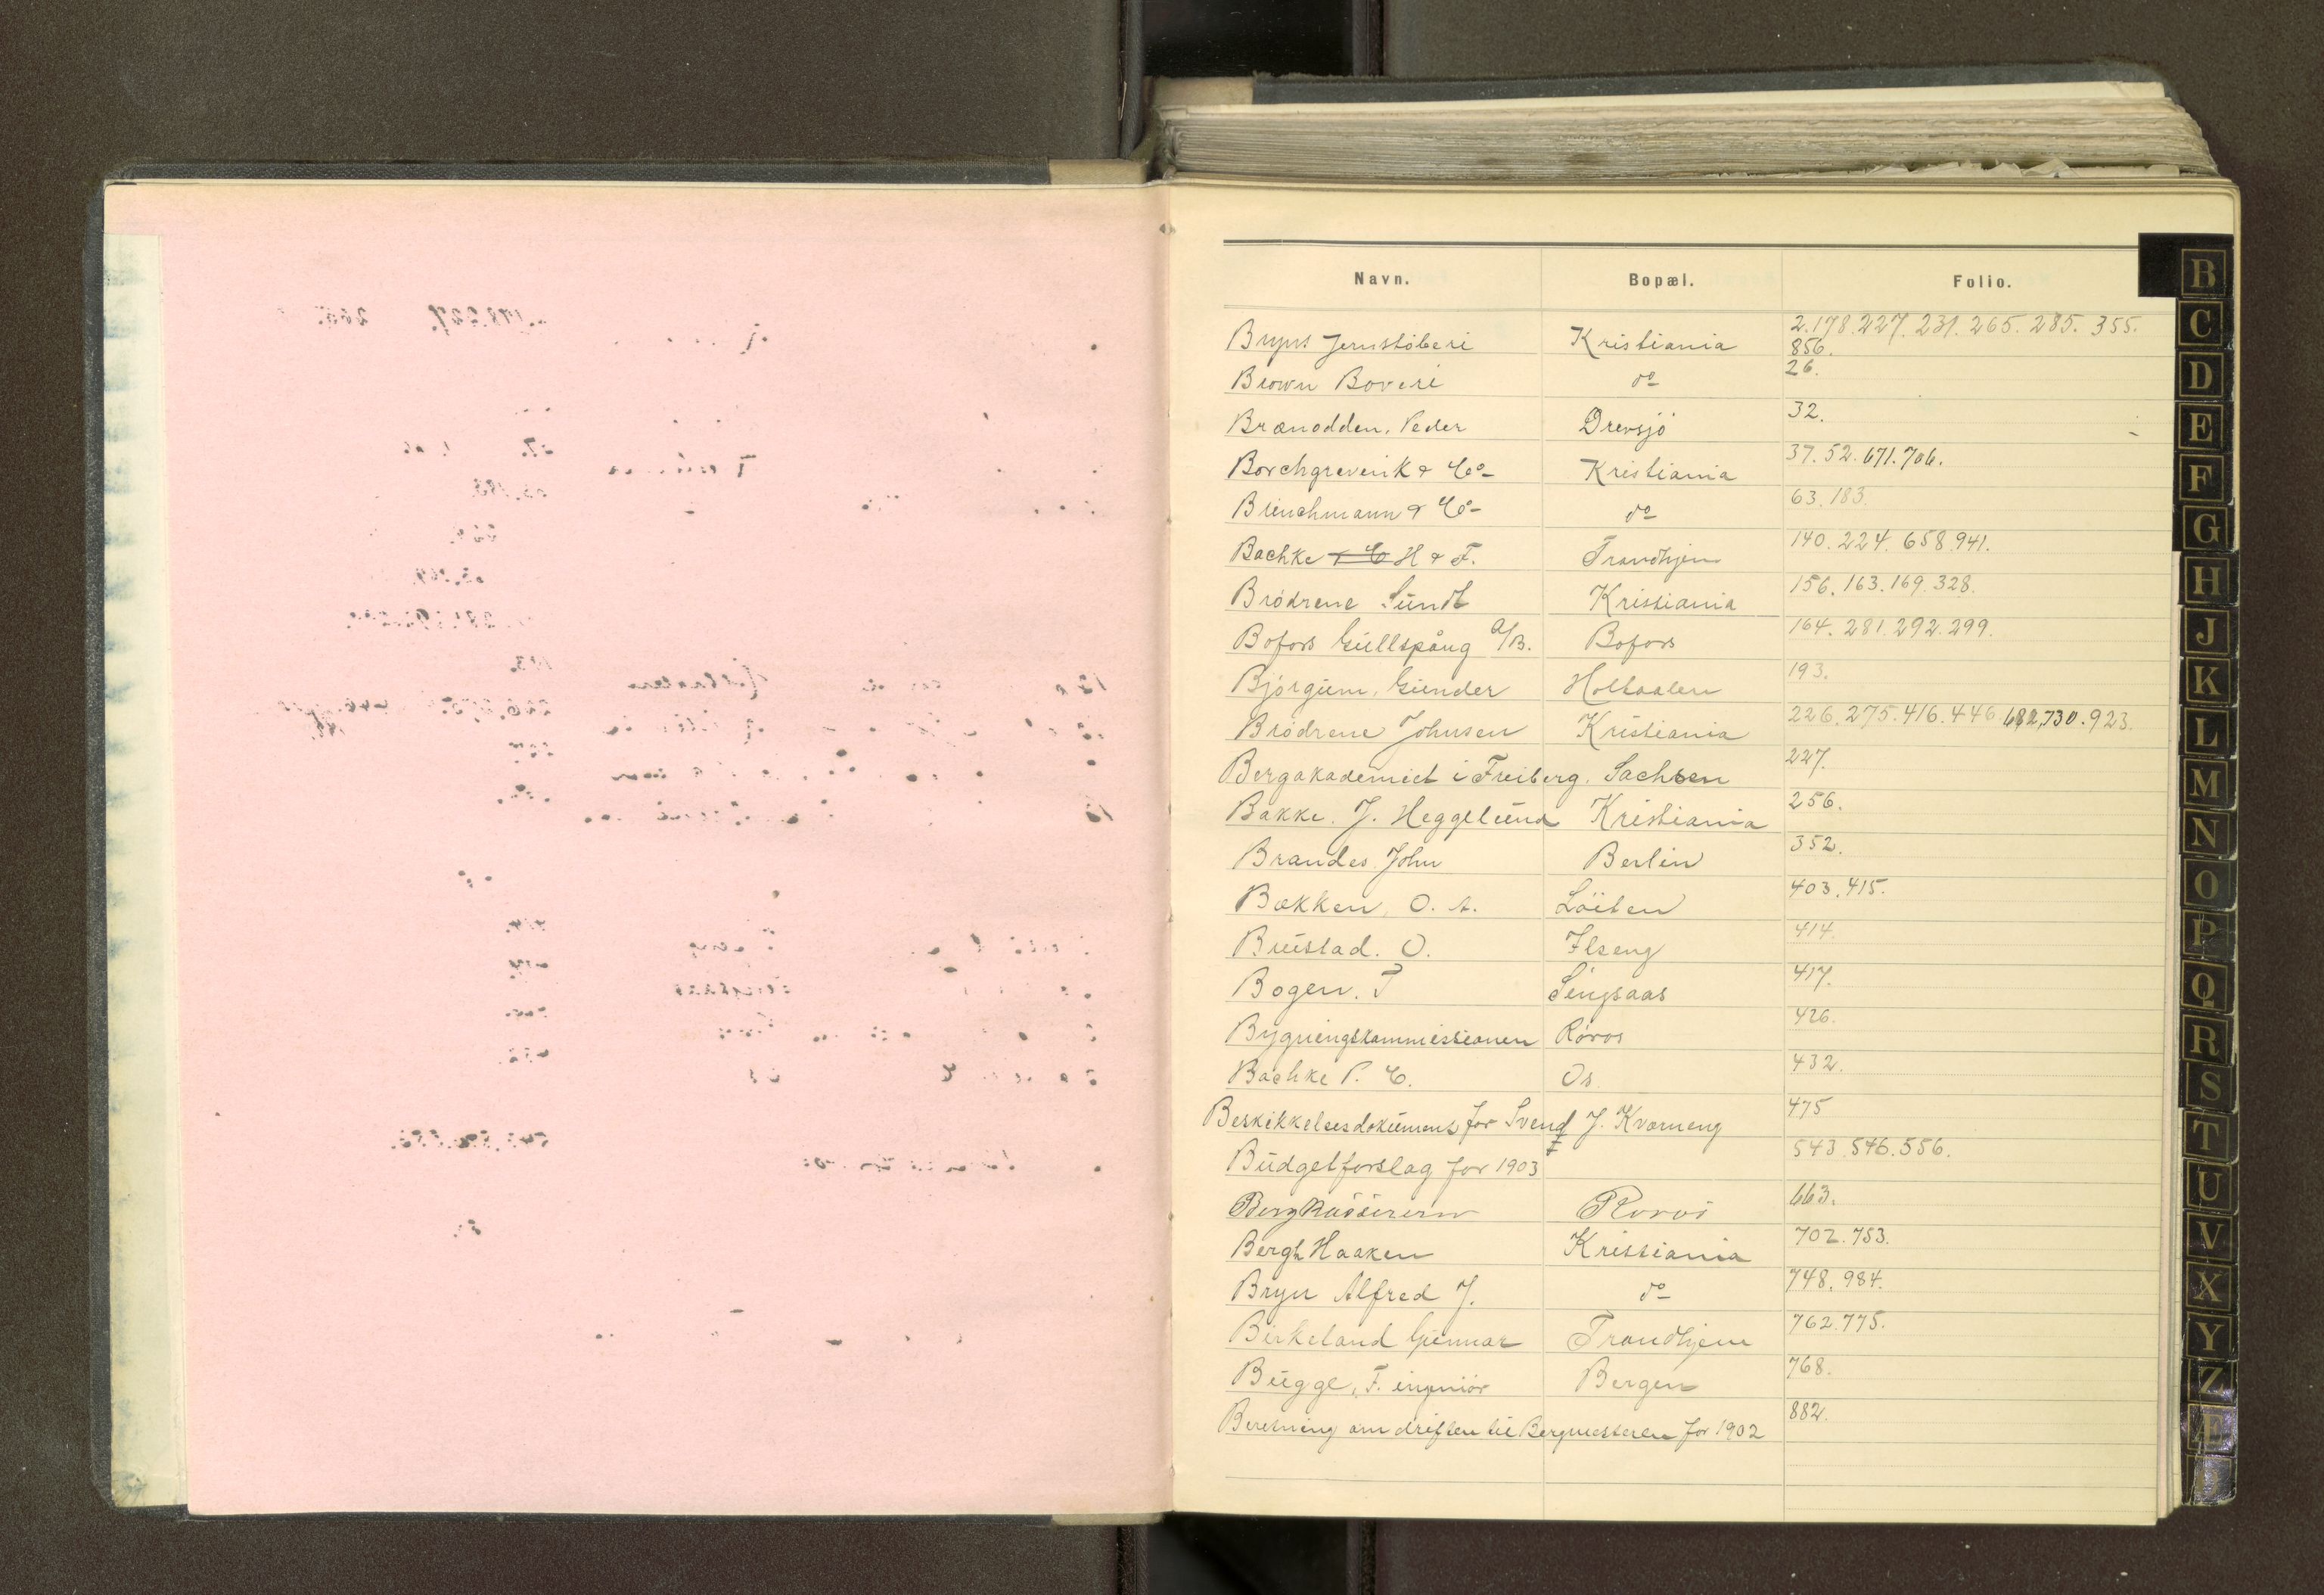 Navn. Bopæl. Folio.
Bryns Jernstöberi Kristiania 2.178.227.231.265.285.355.
856.
Brown Boveri do 26.
Brænodden, Peder Drevsjö 32.
Borchgrevenk & Co Kristiania 37.52.671.706.
Brenchmann & Co do 63.183.
Bachke & C H & F. Trondhjem 140.224.658.941.
Brödrene Sundt Kristiania 156.163.169.328.
Bofors Gullspång A/B. Bofors 164.281.292.299.
Bjórgum, Gunder Holtaalen 193.
Brödrene Johnsen Kristiania 226.275.416.446.682.730.923.
Bergakademiet i Freiberg. Sachsen 227.
Bakke. J. Heggelund Kristiania 256.
Brandes. John Berlin 352.
Bækken, O. A. Löiten 403.415.
Brustad. O. Ilseng 414.
Bogen. T Singsaas 417.
Bygningskommissionen Röros 426.
Bachke P. C. Os 432.
Beskikkelsesdokument for Svend J. Kværneng 475
Budgetforslag for 1903 543.546.556.
Bergkassereren Röros 663.
Bergh Haaken Kristiania 702.753.
Bryn Alfred J. do 748.984.
Birkeland Gunnar Trondhjem 762.775.
Bugge, F. ingeniör Bergen 768.
Beretning om driften til Bergmesteren for 1902 882.
B
C
D
E
F
G
H
J
K
L
M
N
O
P
Q
R
S
T
U
V
X
Y
Z
Æ